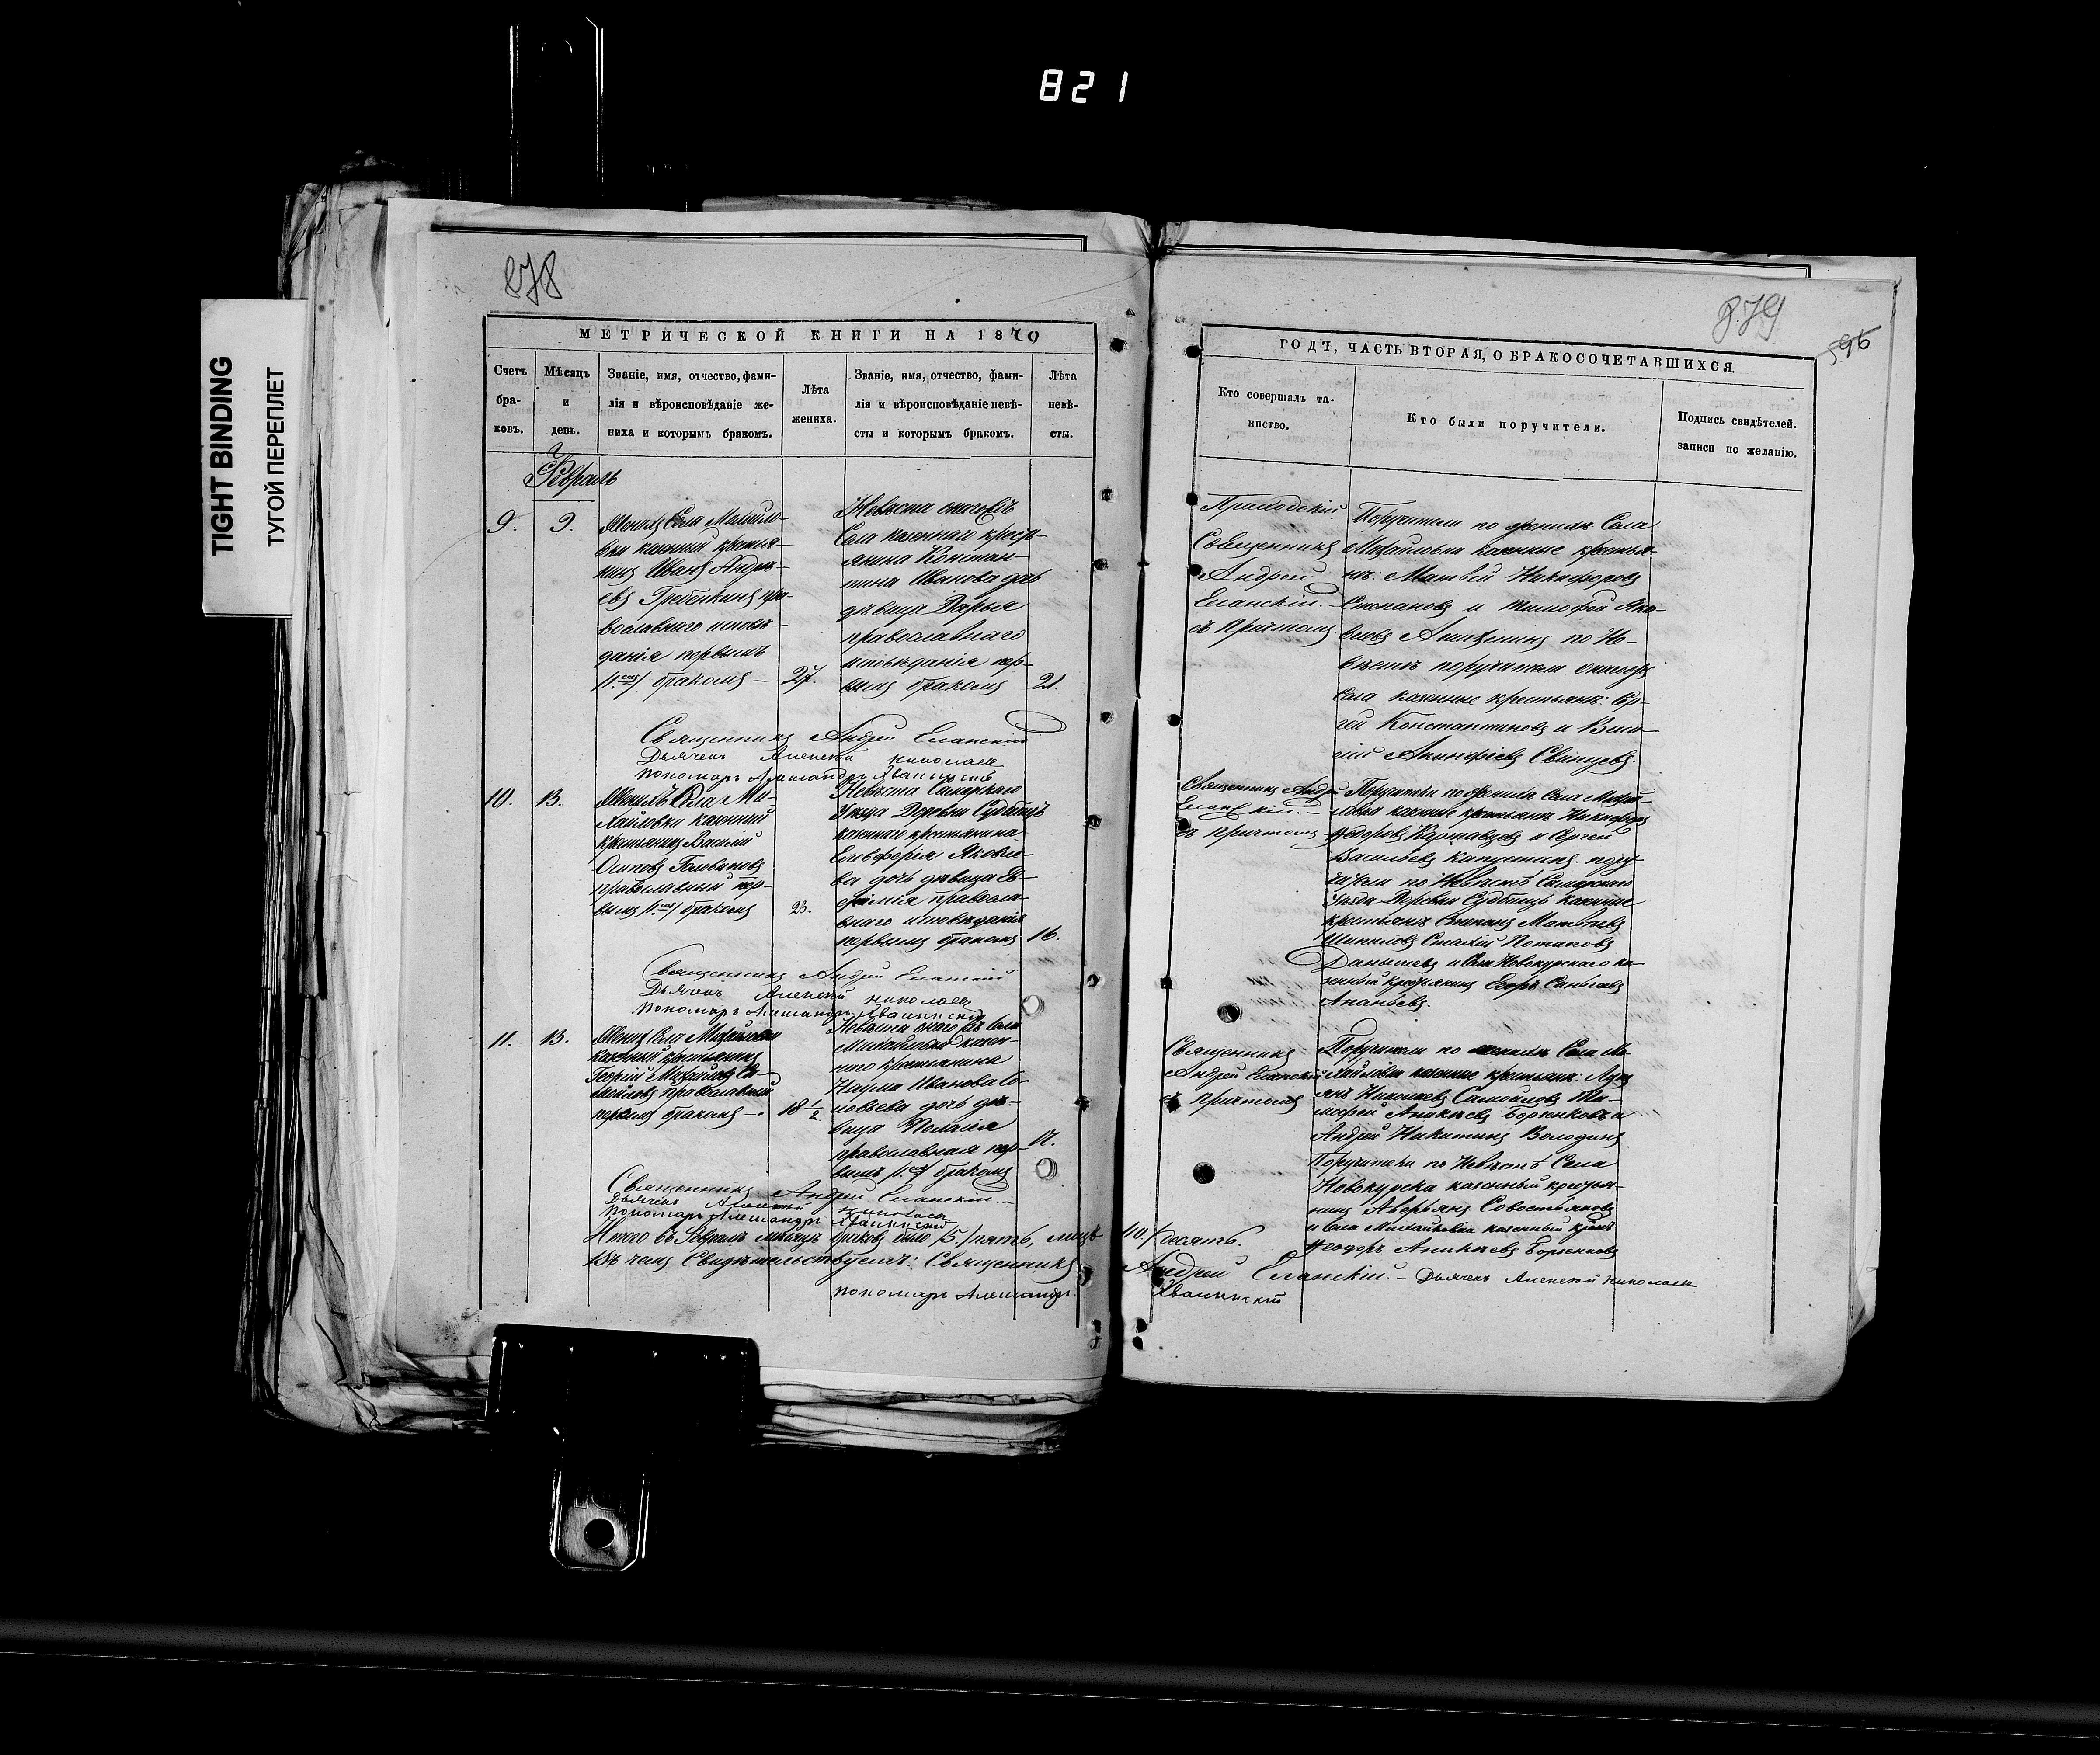 821
TIGHT BINDING
ТУГОЙ ПЕРЕПЛЕТ
878
МЕТРИЧЕСКОЙ КНИГИ НА 1870
Счетъ бра-ковъ.
Мѣсяцъ и день.
Званіе, имя, отчество, фами-
лія и вѣроисповѣданіе же-
ниха и которымъ бракомъ.
Лѣта
жениха.
Званіе, имя, отчество, фами-
лія и вѣроисповѣданіе невѣ-
сты и которымъ бракомъ.
Лѣта
невѣ-
сты.
Февраль
9.
9.
Женихъ Села Михайло-
вки казенный крестья-
нинъ Иванъ Андре-
евъ Гребенкинъ пра-
вославнаго исповѣ-
данія первымъ
бракомъ
27.
Невѣста онагожъ
Села казеннаго крестья-
янина Констан-
тина Иванова дочь
дѣвица Дарья
православнаго
исповѣданія пер-
вымъ бракомъ
21.
Священникъ Андрей Еланскій
Дьячекъ Алексѣй Николаевъ
Пономарь Александръ Хвалынскій
10.
13.
Женихъ Села Ми-
хайловки казенный
крестьянинъ Василій
Осиповъ Головиновъ
православный пер-
вымъ бракомъ
23.
Невѣста Самарскаго
Уѣзда Деревни
казеннаго крестьянина
Елевферія Яковле-
ва дочь дѣвица Ев-
фимія правосла-
внаго исповѣданія
первымъ бракомъ
16.
Священникъ Андрей Еланскій
Дьячекъ Алексѣй Николаевъ
Пономарь Александръ Хвалынскій
11.
13.
Женихъ Села Михайловки
казенный крестьянинъ
Георгій Михайловъ Са-
мойловъ православный
первымъ бракомъ
18 1/2
Невѣста онагожъ Села
Михайловки казен-
наго крестьянина
Наума Иванова
дочь дѣ-
вица Пелагія
православная пер-
вымъ бракомъ
17.
Священникъ Андрей Еланскій
Дьячекъ Алексѣй Николаевъ
Пономарь Александръ Хвалынскій
Итого въ Февралѣ мѣсяцѣ браковъ было /5./ пять, лицъ
Въ чемъ Свидѣтельствуемъ: Священникъ
Пономарь Александръ
879
596
ГОДЪ, ЧАСТЬ ВТОРАЯ, О БРАКОСОЧЕТАВШИХСЯ.
Кто совершалъ та-
инство.
Кто были поручители.
Подпись свидѣтелей.
записи по желанію.
Приходскій
Священникъ
Андрей
Еланскій.
съ причтомъ
Поручители по женихѣ Села
Михайловки казенные крестья-
не: Матвѣй Никифоровъ
Степановъ и Тимофей Яко-
влевъ по Не-
вѣстѣ поручители онагожъ
Села казенные крестьяне: Сер-
гей Константиновъ и Васи-
лій Акинфіевъ Свинцевъ.
Священникъ Андрей
Еланскій.
съ причтомъ
Поручители по женихѣ Села Михай-
ловки казенные крестьяне Никифоръ
Ѳедоровъ и Сергей
Васильевъ Капустинъ. пору-
чители по Невѣстѣ Самарскаго
Уѣзда Деревни казенные
крестьяне Степанъ Матвѣевъ
Шипиловъ Потаповъ
и Села Новокурскаго ка-
зенный крестьянинъ Егоръ
Ананьевъ.
Священникъ
Андрей Еланскій
съ причтомъ
Поручители по женихѣ Села Ми-
хайловки казенные крестьяне:
Николаевъ Самойловъ Ти-
мофей Аникѣевъ Борзенковъ и
Андрей Никитинъ Володинъ
Поручители по Невѣстѣ Села
Новокурска казенный крестья-
нинъ Аверьянъ Совостьяновъ
и Села Михайловки казенный
Ѳеодоръ Аникѣевъ Борзенковъ
/10./ десять.
Андрей Еланскій. Дьячекъ Алексѣй Николаевъ
Хвалынскій